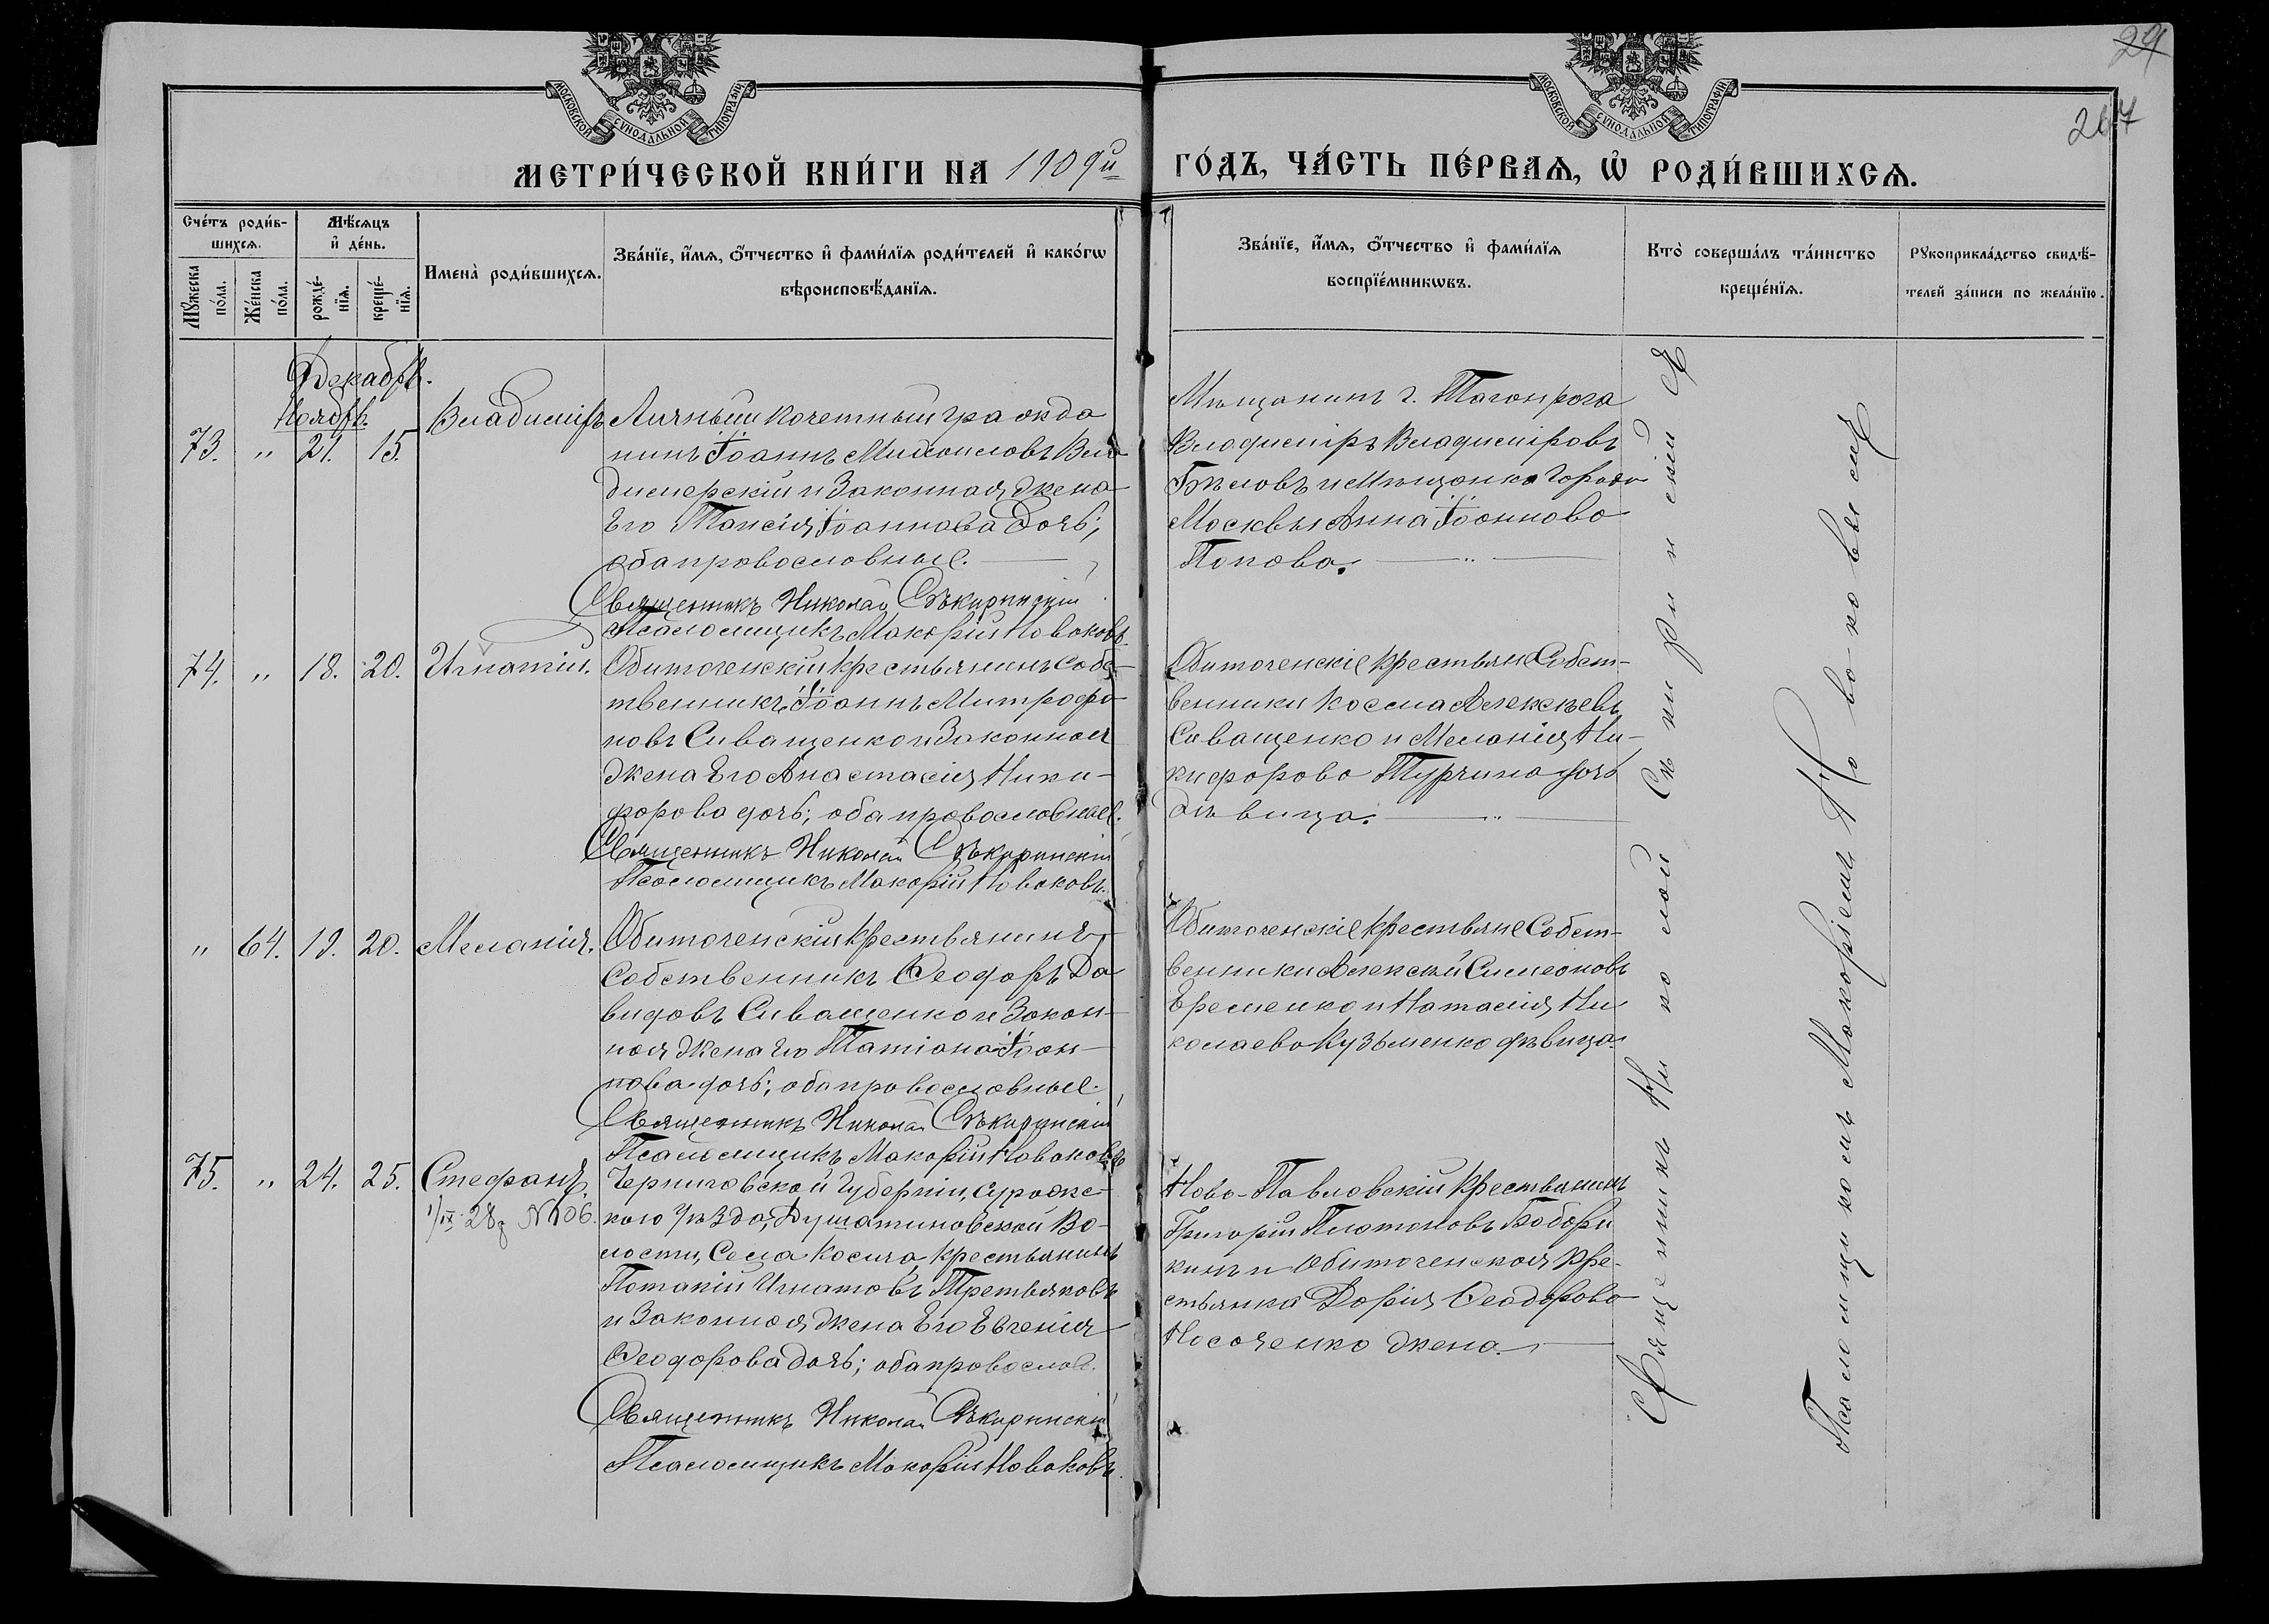 29
267
МОСКОВСКОЙ СУНОДАЛЬНОЙ ТИПОГРАФІИ
МОСКОВСКОЙ СУНОДАЛЬНОЙ ТИПОГРАФІИ
МЕТРИ́ЧЕСКОЙ КНИ́ГИ НА 1909й
ГО́ДЪ, ЧА́СТЬ ПЕ́РВАѦ, Ѡ҆ РОДИ́ВШИХСѦ.
Сче́тъ роди́в-
шихсѧ.
Мꙋ́жеска по́ла.
Же́нска по́ла.
Мѣ́сѧцъ
и҆ де́нь.
рожде́-нїѧ.
креще́-нїѧ.
Имена̀ роди́вшихсѧ.
Зва́нїе, и҆́мѧ, ѻ҆́тчество и҆ фами́лїѧ роди́телей и҆ како́гѡ
вѣроисповѣ́данїѧ.
Зва́нїе, и҆́мѧ, ѻ҆́тчество и҆ фами́лїѧ
воспрїе́мникѡвъ.
Кто̀ соверша́лъ та́инство
креще́нїѧ.
Рꙋкоприкла́дство свидѣ́-
телей за́писи по жела́нїю.
Декабрь.
Ноябрь.
73. " 21. 15. Владиміръ
Личный почетный гражда
нинъ Іоаннъ Михаиловъ Вла
димерскій и Законная жена
Его Таисія Іоаннова дочь;
оба православные.
Священникъ Николай Сѣкиринскій
Псаломщикъ Макарій Новаковъ
Мѣщанинъ г. Таганрога
Владиміръ Владиміровъ
Бѣловъ и Мѣщанка города
Москвы Анна Іоаннова
Попова.
74. " 18. 20. Игнатій.
Обиточенскій крестьянинъ соб-
ственникъ Іоаннъ Митрофа
новъ Сиващенко и Законная
жена Его Анастасія Ники-
форова дочь; оба православные.
Священникъ Николай Сѣкиринскій
Псаломщикъ Макарій Новаковъ.
Обиточенскіе крестьяне Собст-
венники Косма Алексѣевъ
Сиващенко и Меланія Ни-
кифорова Турчина дочь
дѣвица.
" 64. 19. 20. Меланія.
Обиточенскій крестьянинъ
Собственникъ Ѳеодоръ Да
видовъ Сиващенко и Закон-
ная жена Его Татіана Іоан-
нова дочь; оба православные.
Священникъ Николай Сѣкиринскій
Псаломщикъ Макарій Новаковъ
Обиточенскіе крестьяне Собст-
венники Алексѣй Симеоновъ
Еременко и Наталія Ни
колаева Кузьменко дѣвица.
75. " 24. 25. Стефанъ.
1/IX 28г №106.
Черниговской Губерніи, Суражс-
кого Уѣзда, Душатиновской Во-
лости, Села Косича крестьянинъ
Потапій Игнатовъ Третьяковъ
и Законная жена Его Евгенія
Ѳеодорова дочь; оба православ.
Священникъ Николай Сѣкиринскій
Псаломщикъ Макарій Новаковъ.
Ново-Павловскій крестьянинъ
Григорій Платоновъ Бобори
кинъ и Обиточенская кре-
стьянка Дарія Ѳеодорова
Носаченко жена.
Священникъ Николай Сѣкиринскій съ
Псаломщикомъ Макаріемъ Новаковымъ